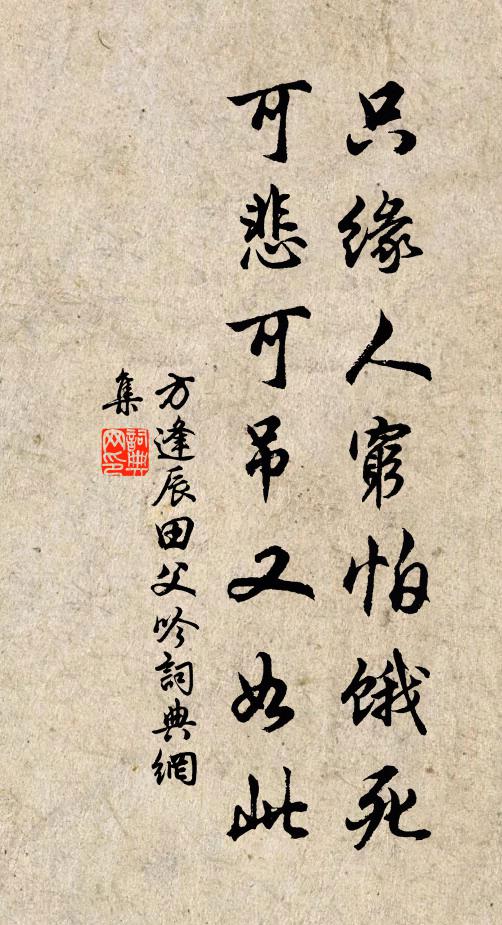 只緣人窮怕餓死
可悲可吊又如此
方逢辰田父吟詞典網
集
詞典網印